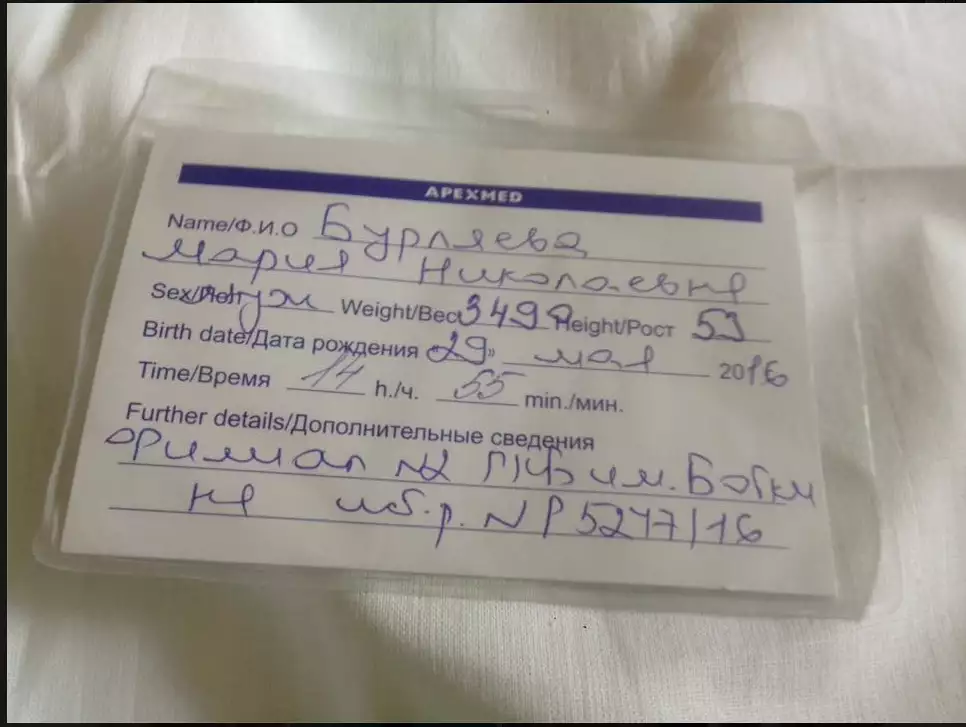 APEXMED
Name/Ф.И.О Бурляева
Мария Николаевна
Sex/Пол муж Weight/Вес 3499 Height/Рост 53
Birth date/Дата рождения «29» мая 2016
Time/Время 14 h./ч. 55 min./мин.
Further details/Дополнительные сведения
Филиал №2 им. Боткин
на и/б.р. №Р5247/16